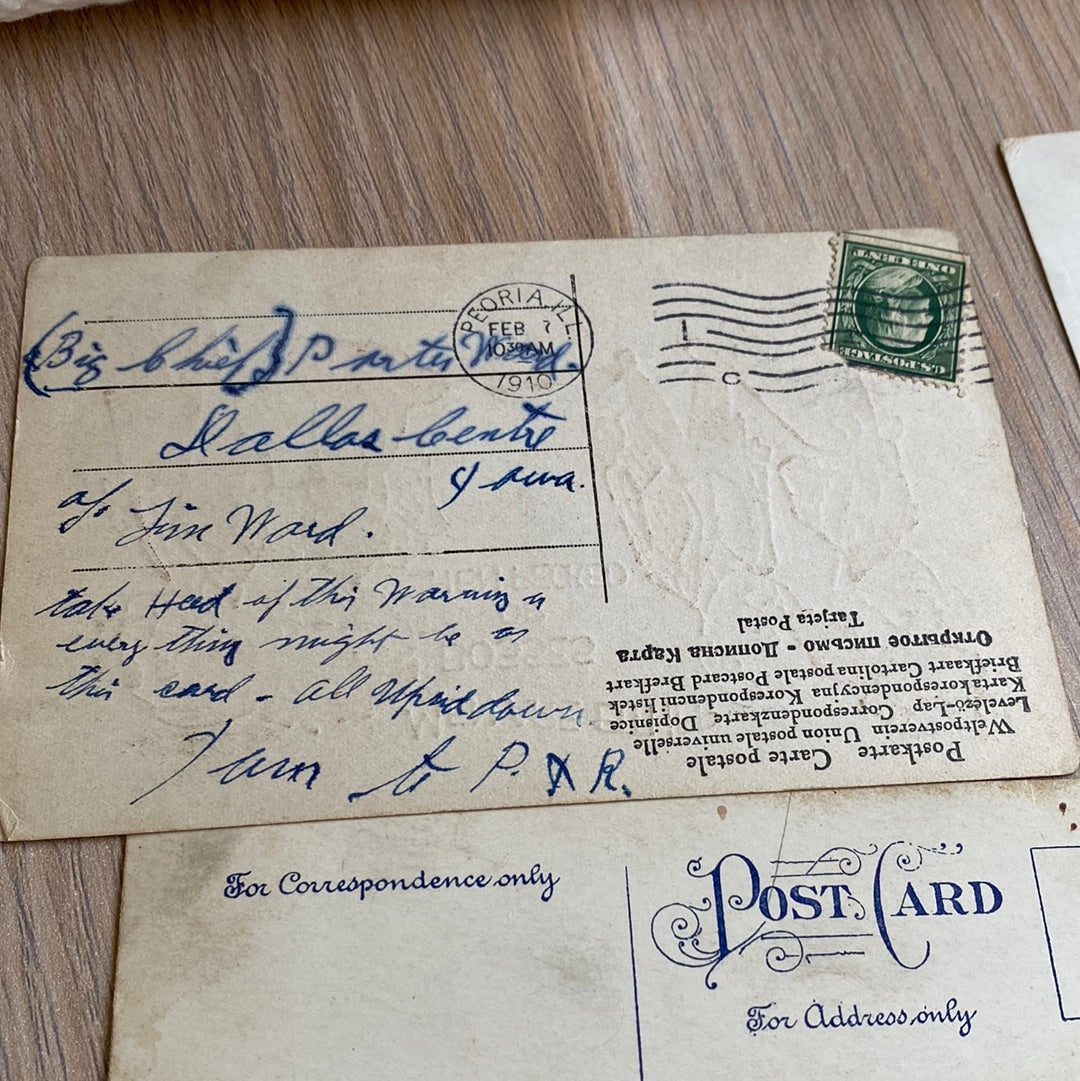 PEORIA, ILL.
FEB 7
10 30 AM
1910
U.S. POSTAGE
ONE CENT
(Big Chief) Porter Ward.
Dallas Centre
Iowa.
c/o Jim Ward.
take Heed of this Warning
every thing might be as
this card - all Upsid down.
P. & R.
Postkarte Carte postale
Weltpostverein Union postale universelle
Levelező-Lap Correspondenzkarte Dopisnice
Karta korespondencyjna Korespondenční listek
Briefkaart Cartolina postale Postcard Brefkort
Открытое письмо - Дописна Карта
Tarjeta Postal
For Correspondence only
POST CARD
For Address only